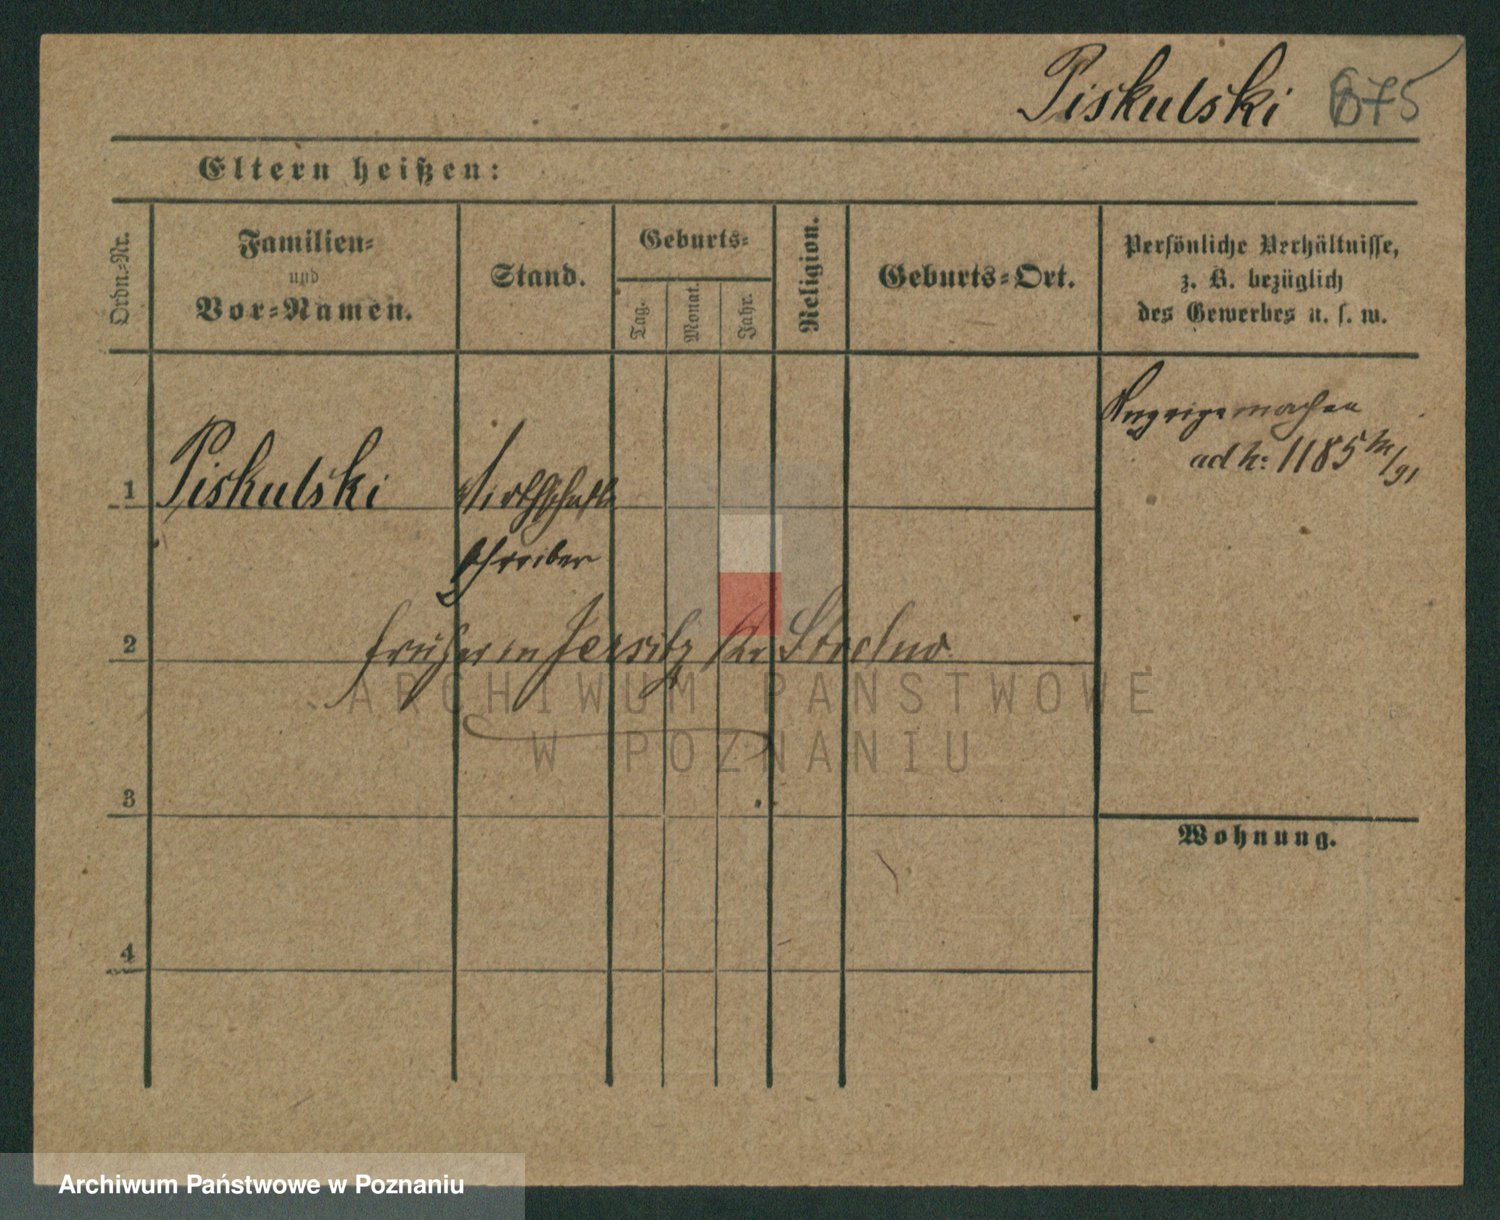 Piskulski 675
Eltern heißen:
Ordn.-Nr.
Familien-
und
Vor-Namen.
Stand.
Geburts-
Tag.
Monat.
Jahr.
Religion.
Geburts-Ort.
Persönliche Verhältnisse,
z. B. bezüglich
des Gewerbes u. s. w.
Anzeige machen
ad N: 1185 /91
1 Piskulski Wirthschafts
schreiber
2 früher in Jersitz Kr Strelno
ARCHIWUM PAŃSTWOWE
W POZNANIU
3
Wohnung.
4
Archiwum Państwowe w Poznaniu